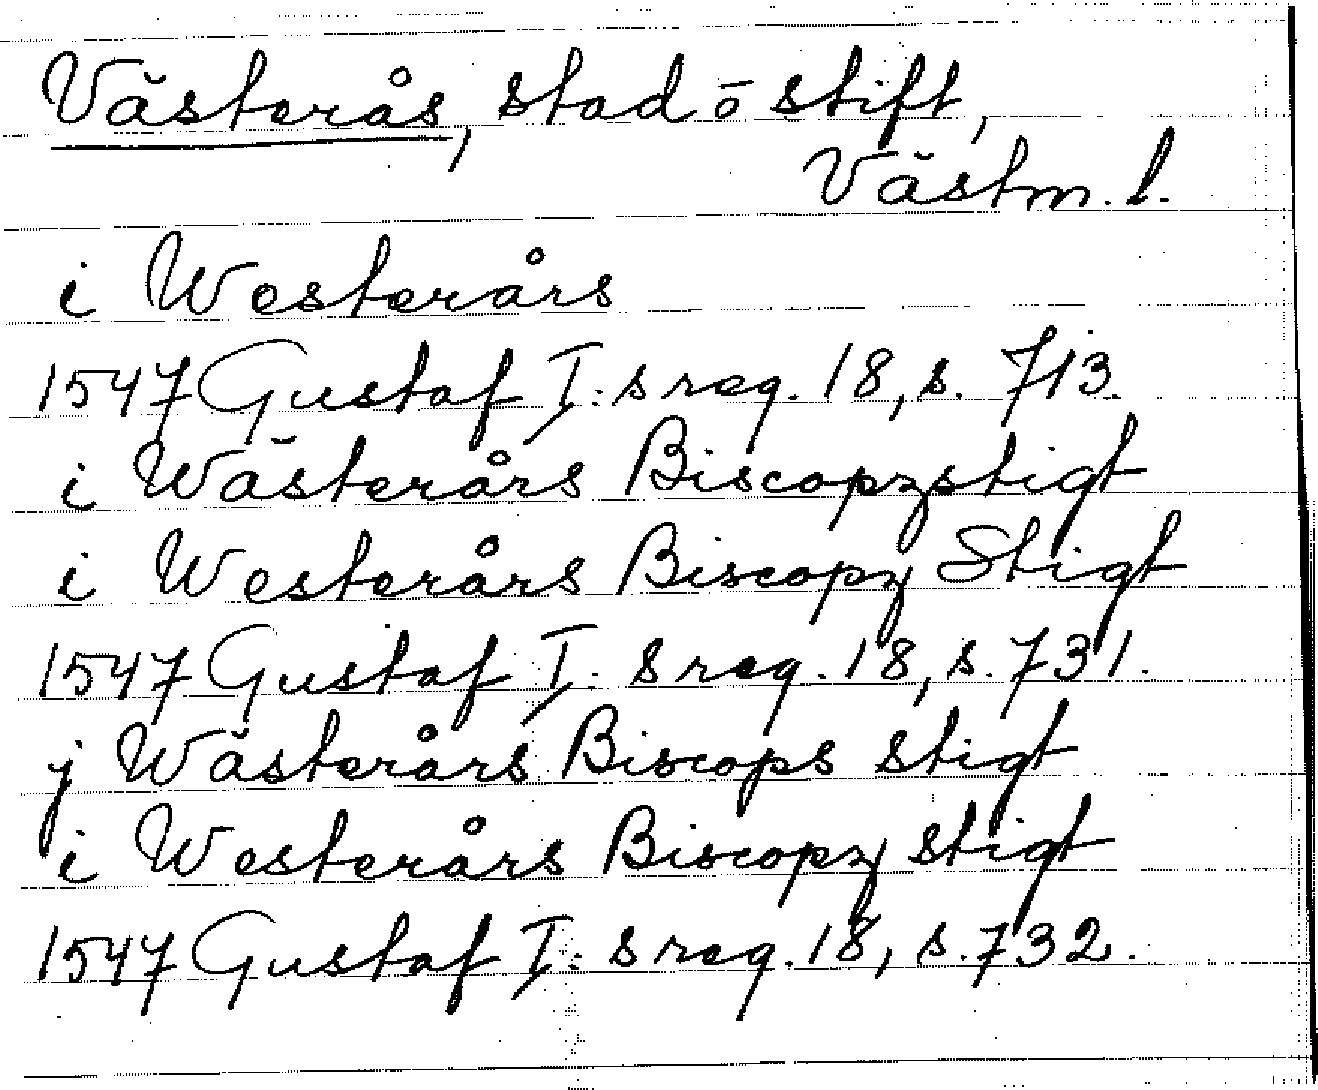 Västerås, stad o stift,
Västm. l.
i Westerårs
1547 Gustaf I:s reg. 18, s. 713.
i Wästerårs Biscopzstigt
i Westerårs Biscopz Stigt
1547 Gustaf I:s reg. 18, s. 731.
j Wästerårs Biscops stigt
i Westerårs Biscopz stigt
1547 Gustaf I:s reg. 18, s. 732.